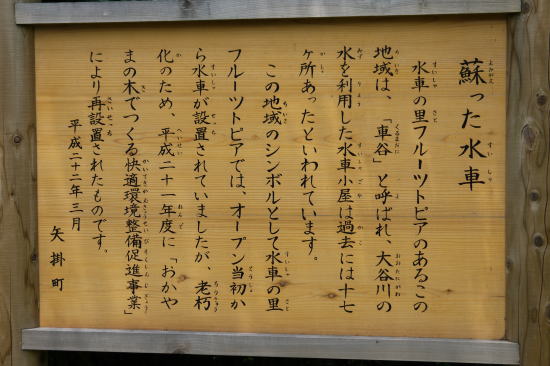 蘇った水車
水車の里フルーツトピアのあるこの
地域は、「車谷」と呼ばれ、大谷川の
水を利用した水車小屋は過去には十七
ヶ所あったといわれています。
この地域のシンボルとして水車の里
フルーツトピアでは、オープン当初か
ら水車が設置されていましたが、老朽
化のため、平成二十一年度に「おかや
まの木でつくる快適環境整備促進事業」
により再設置されたものです。
平成二十二年三月
矢掛町